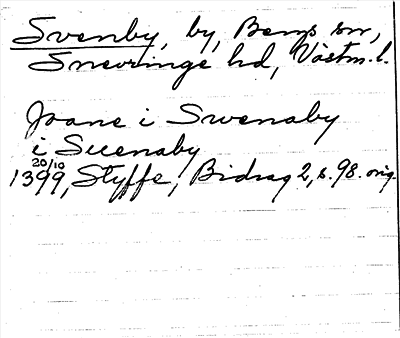 Svenby, by, Bergs sn,
Snevringe hd, Västm. l.
Joane i Swenaby
i Suenaby
20/10
1399, Styffe, Bidrag 2, s. 98. orig.